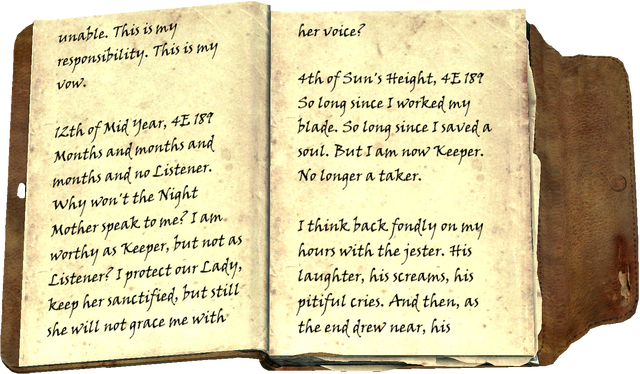 unable. This is my
responsibility. This is my
vow.
12th of Mid Year, 4E 189
Months and months and
months and no Listener.
Why won't the Night
Mother speak to me? I am
worthy as Keeper, but not as
Listener? I protect our Lady,
keep her sanctified, but still
she will not grace me with
her voice?
4th of Sun's Height, 4E 189
So long since I worked my
blade. So long since I saved a
soul. But I am now Keeper.
No longer a taker.
I think back fondly on my
hours with the jester. His
laughter, his screams, his
pitiful cries. And then, as
the end drew near, his